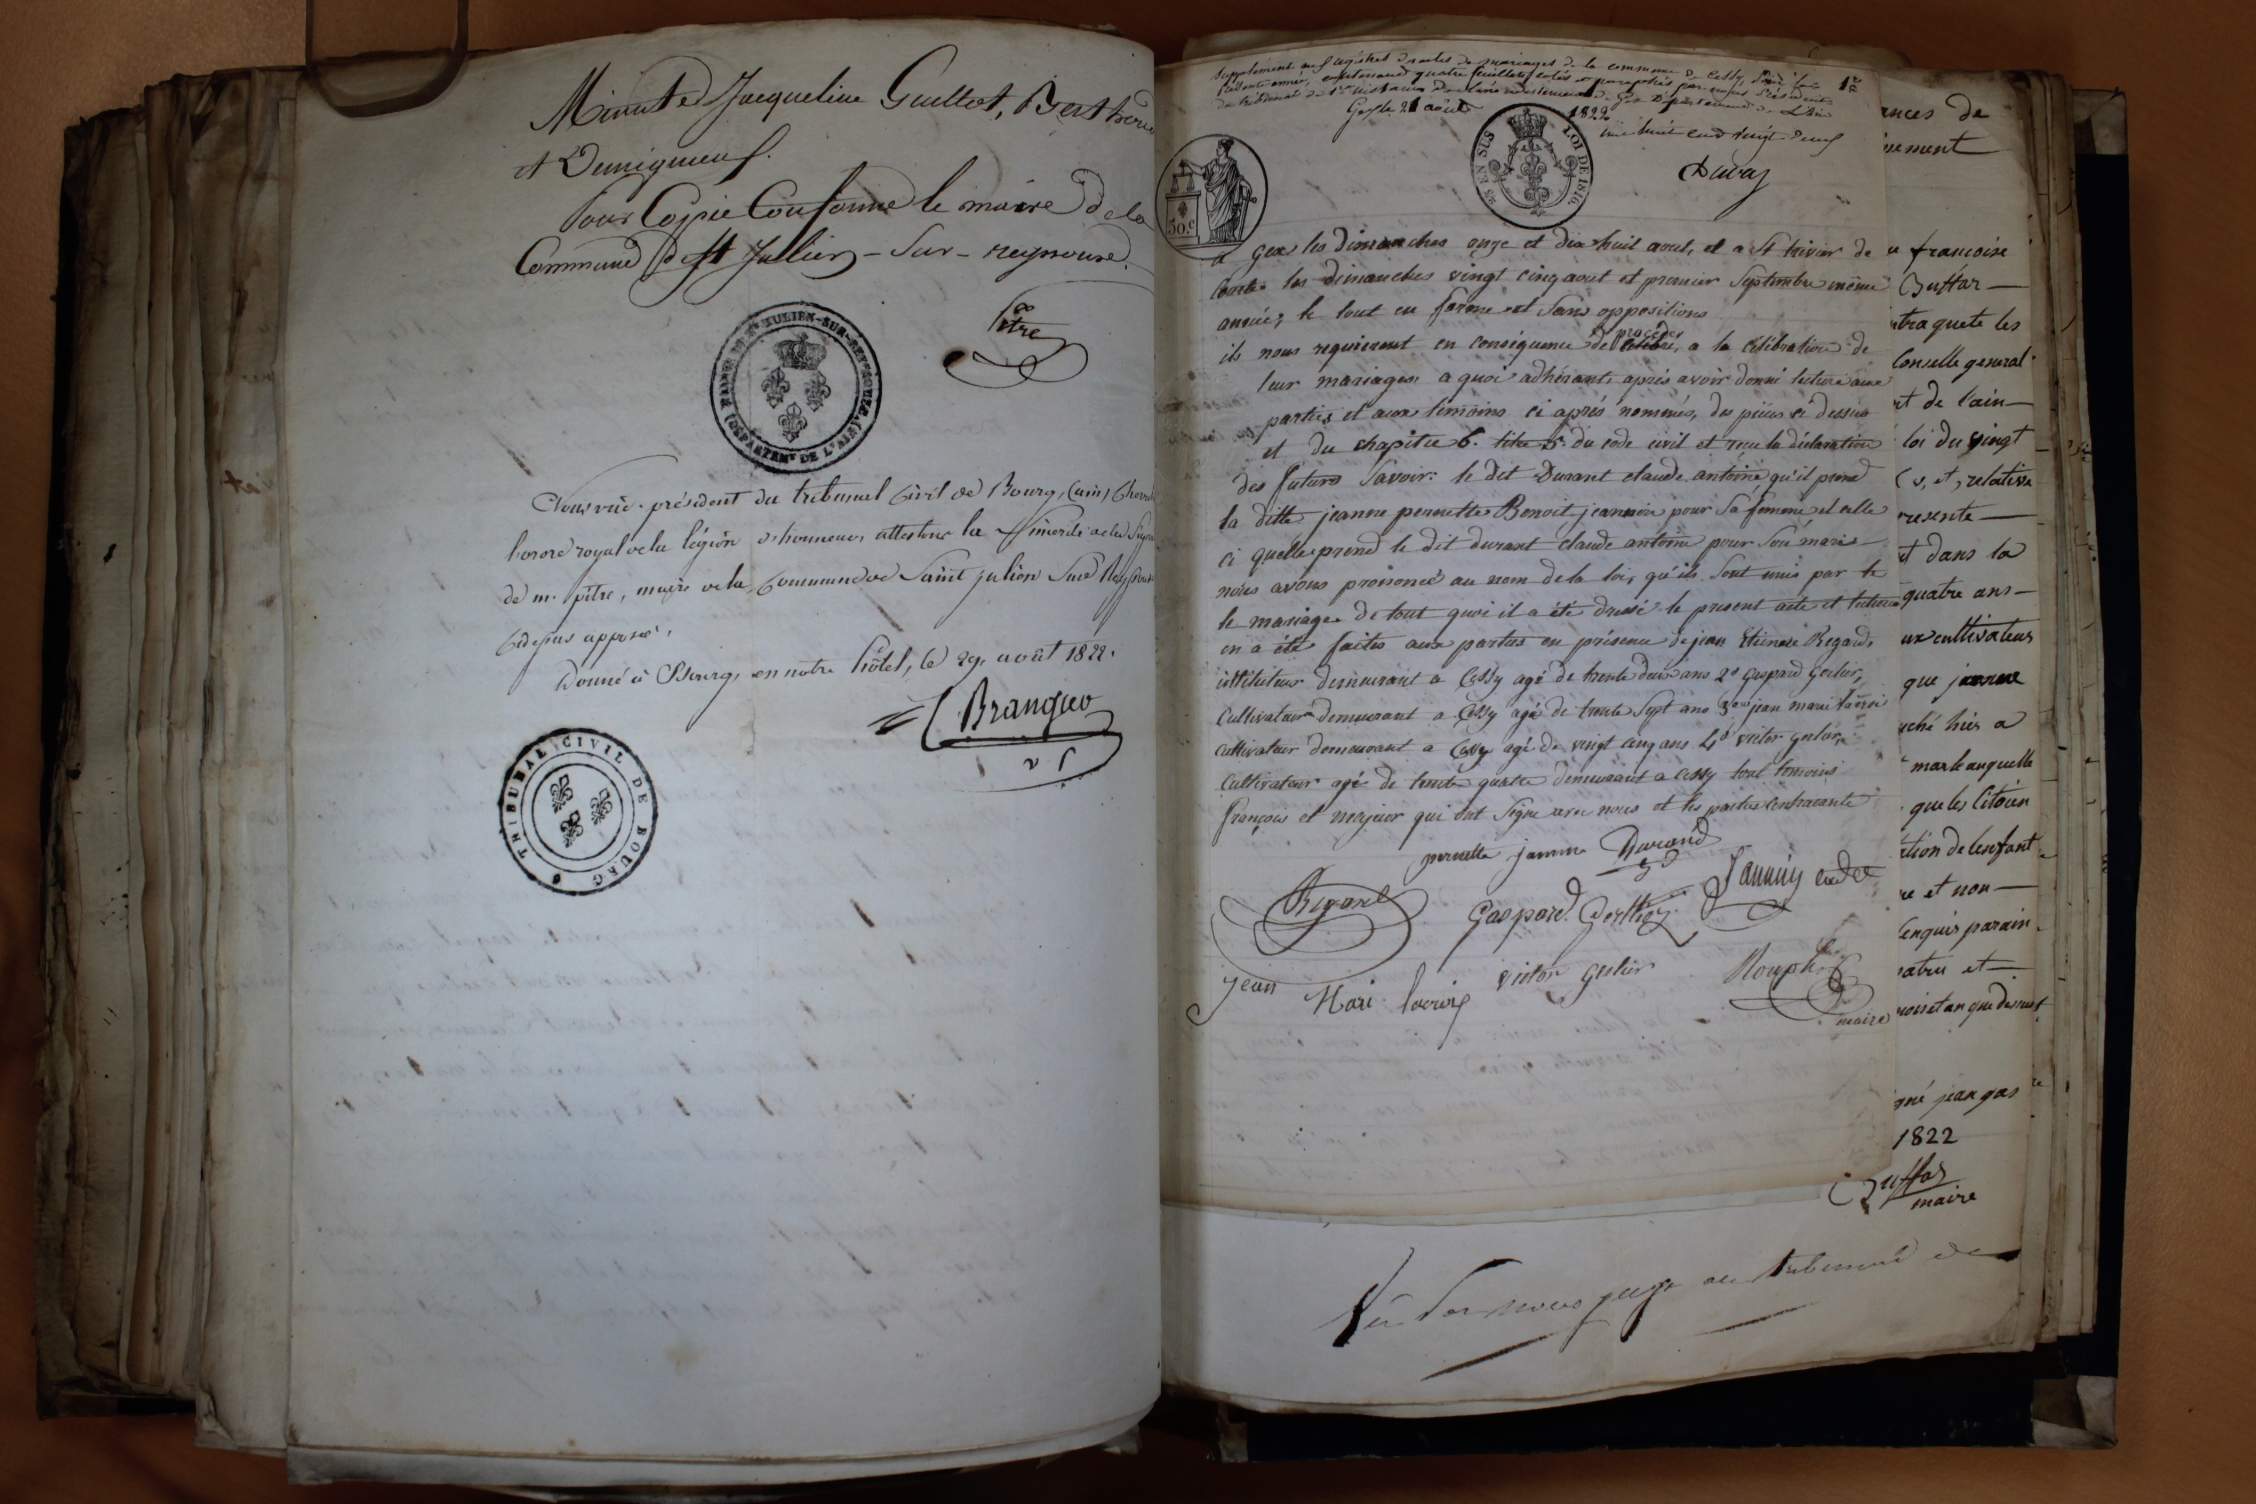 Minute Jacqueline Guillot, Berthoud
et Dunigneuf.
Pour Copie Conforme le maire de la
Commune de St Julien - sur - reyssouze.
Pitre
MAIRIE DE ST JULIEN-SUR-REYSSOUZE (DÉPARTEMT DE L'AIN)
Nous vice-président du tribunal Civil de Bourg, (ain) Cheval
l'ordre royal de la légion d'honneur, attestons la sincérité de la
de m. pitre, maire de la Commune de Saint julien sur Reyssouze
Cidessus apposée,
Donné à Bourg, en notre hôtel, le 29 août 1822.
Brangier
TRIBUNAL CIVIL DE BOURG
Supplément au Registre d'actes de mariages de la commune de Cessy,
présente année, contenant quatre feuillets cotés et paraphés par nous Président
du tribunal de 1re instance de l'arrondissement de Gex Département de l'Ain
Gex le 21 août 1822
mil huit cent vingt deux
1er
50 c
EN SUS LOI DE 1816.
Duvaz
a gex les dimanches onze et dix huit aout, et a St trivier de
Courtes les dimanches vingt cinq aout et premier Septembre même
année; le tout en forme et sans oppositions
ils nous requierent en conséquence de procéder a la célébration de
leur mariage, a quoi adhérant, après avoir donné lecture aux
parties et aux témoins ci après nommés, des pièces ci dessus
et du chapitre 6. titre 5. du code civil et reçu la déclaration
des futurs Savoir: le dit Durant claude antoine, qu'il prend
la ditte jeanne pernette Benoit jeannin pour sa femme et celle
ci quelle prend le dit durant claude antoine pour son mari
nous avons prononcé au nom de la loi, qu'ils sont unis par le
le mariage de tout quoi il a été dressé le present acte et lecture
en a été faites aux parties en présence de jean Etienne Regard,
instituteur demeurant a Cessy agé de trente deux ans 2º Gaspard Gerlier,
Cultivateur demeurant a Cessy agé de trente sept ans 3º jean marie
cultivateur demeurant a Cessy agé de vingt cinq ans 4º victor gerlier,
Cultivateur agé de trente quatre demeurant a Cessy tous temoins
français et majeur qui ont signé avec nous et les parties contractante
pernette jannin Durand
Regard Gaspard Gerlier Jannin
jean Mari victor gerlier
maire
ances de
sement
françoise
Buffar
traquete les
Conselle general
t de l'ain
loi du vingt
et, relative
resente
t dans la
quatre ans
ux cultivateurs
que jeanne
ché hier a
marke auquelle
que les Citoien
tion de lenfant
re et non
enquis parain
atru et
jean gas
1822
Buffar
maire
Vu Par nous juge au tribunal de